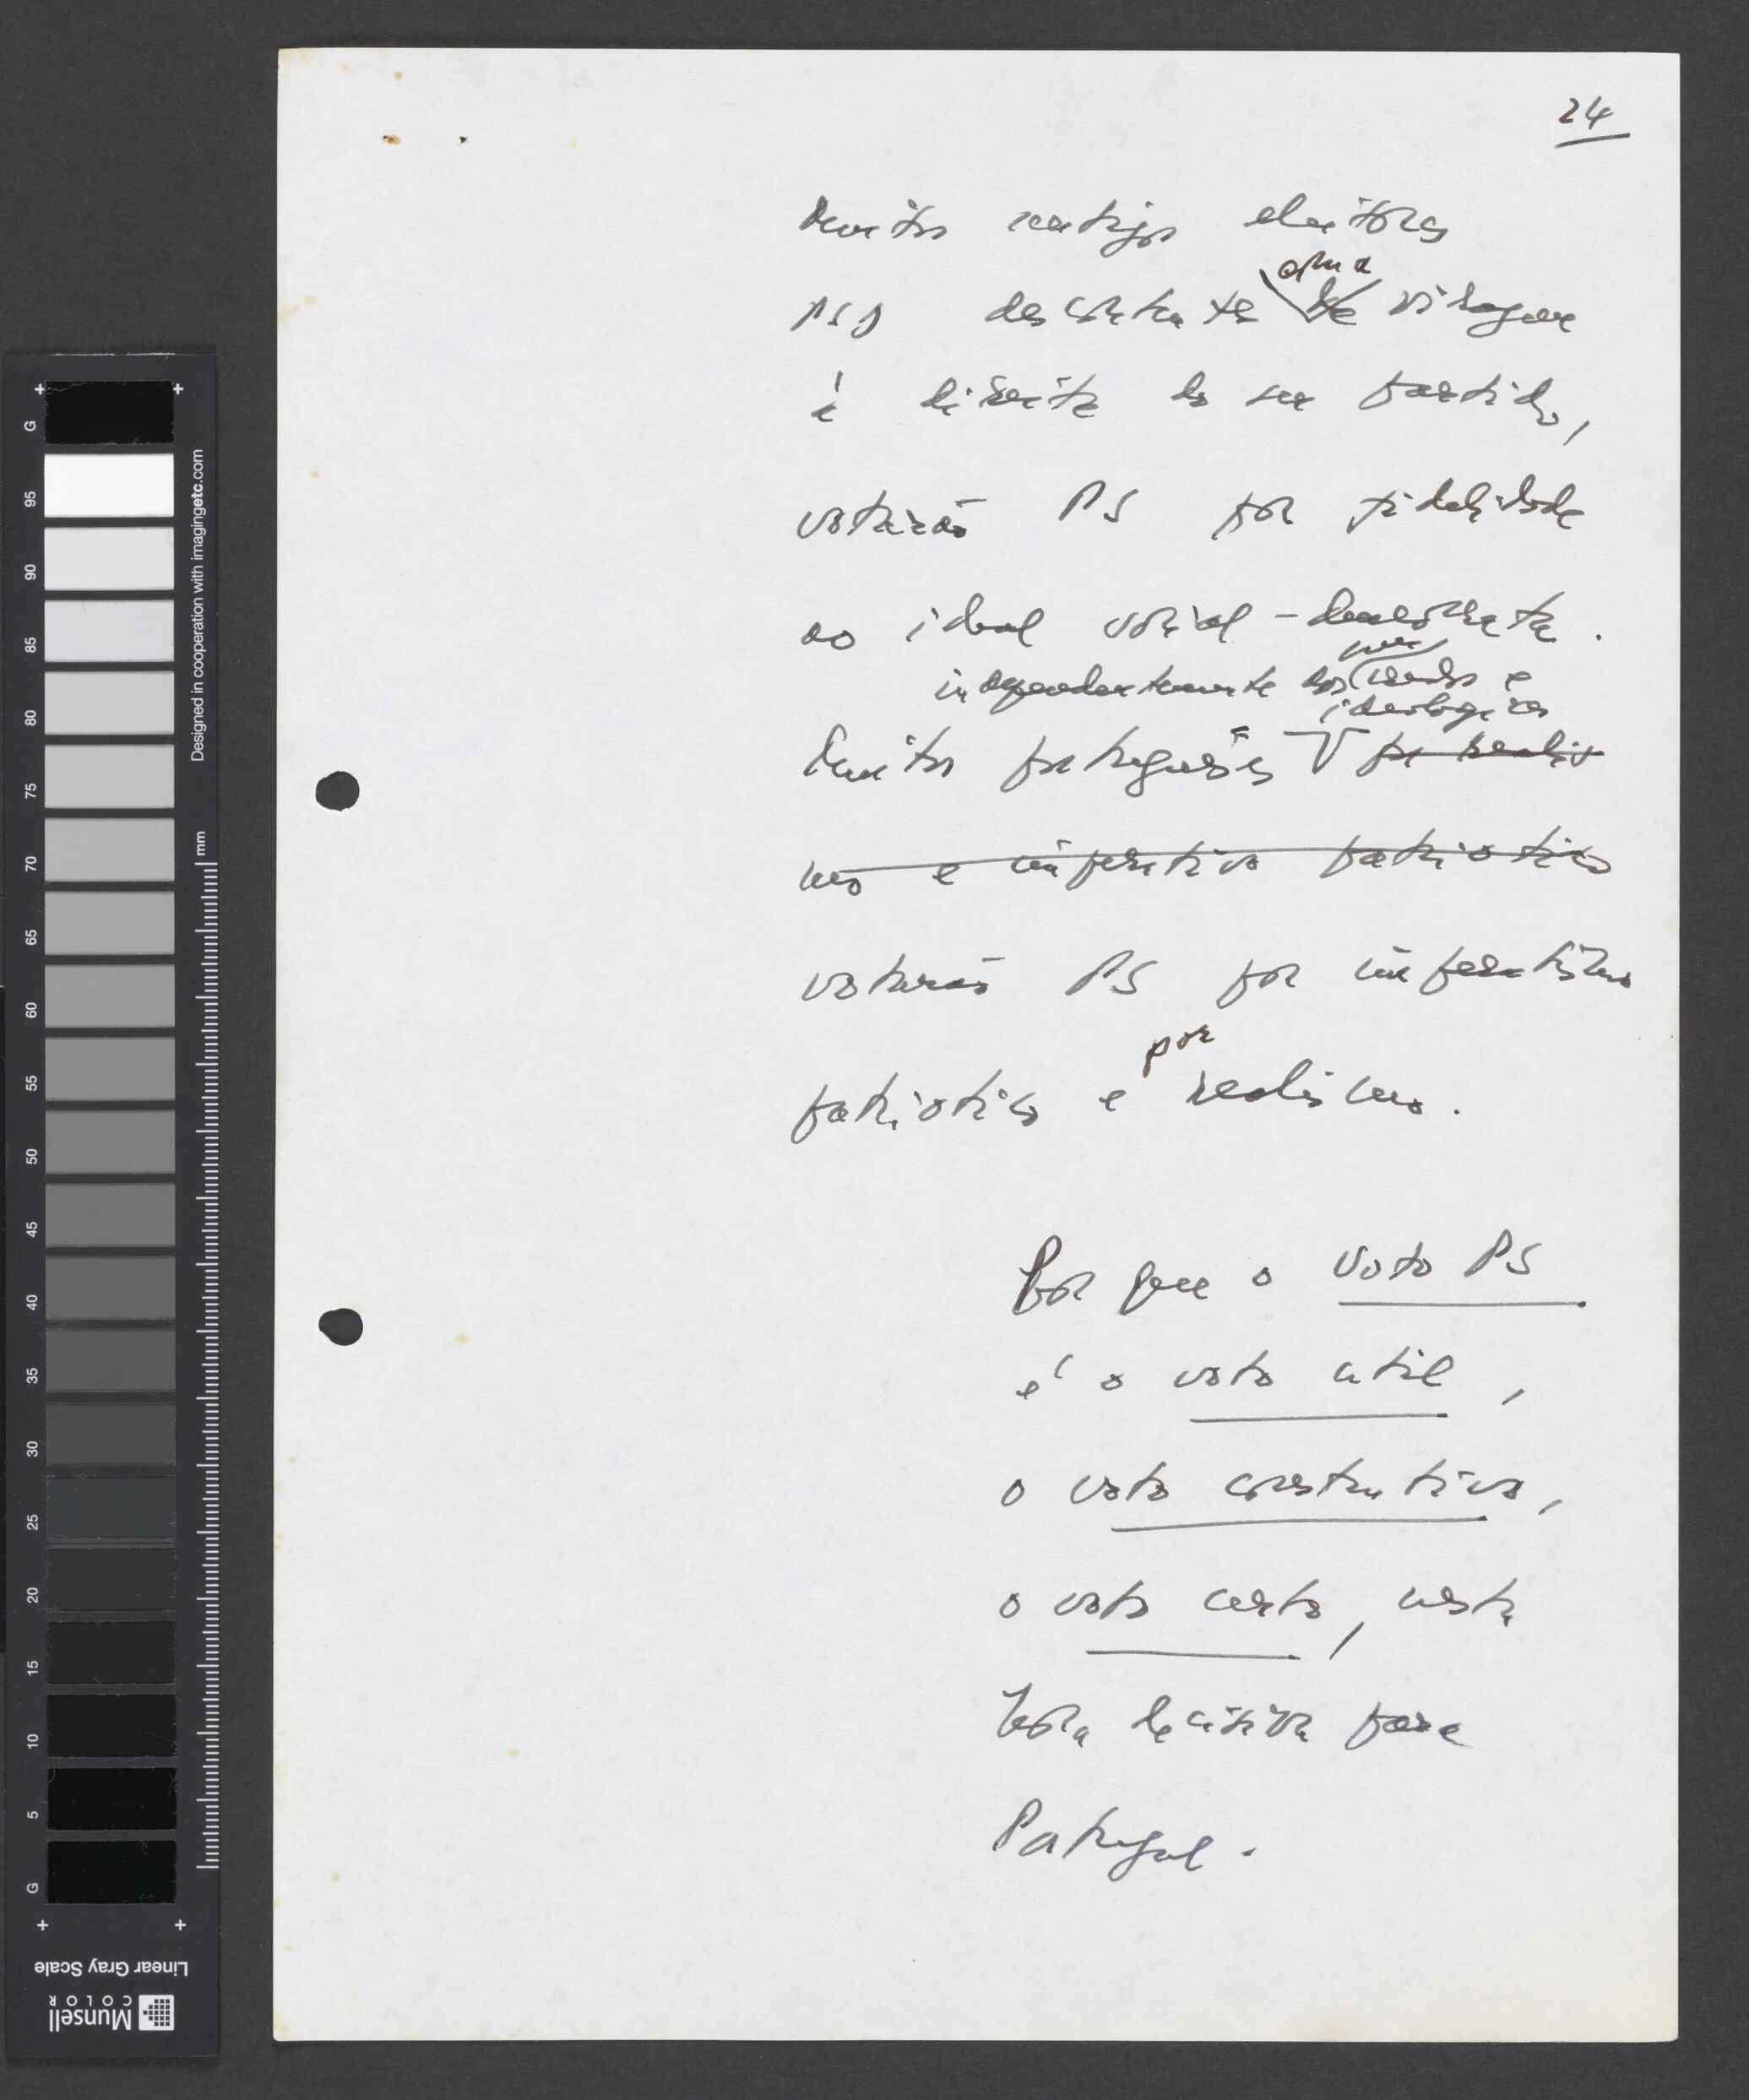 24
Muitos antigos eleitores
com a
PSD descontentes de viragem
à direita do seu partido,
votarão PS por fidelidade
ao ideal social-democrata.
suas
independentemente das crenças e
ideologias
Muitos portugueses por realis
mo e imperativo patriotico
votarão PS por imperativo
por
patriotico e realismo.
Por que o voto PS
é o voto util,
o voto construtivo,
o voto certo, nesta
hora decisiva para
Portugal.
G
95
90
85
80
75
70
65
60
55
50
45
40
35
30
25
20
15
10
5
G
mm
Designed in cooperation with imagingetc.com
Linear Gray Scale
Munsell
COLOR